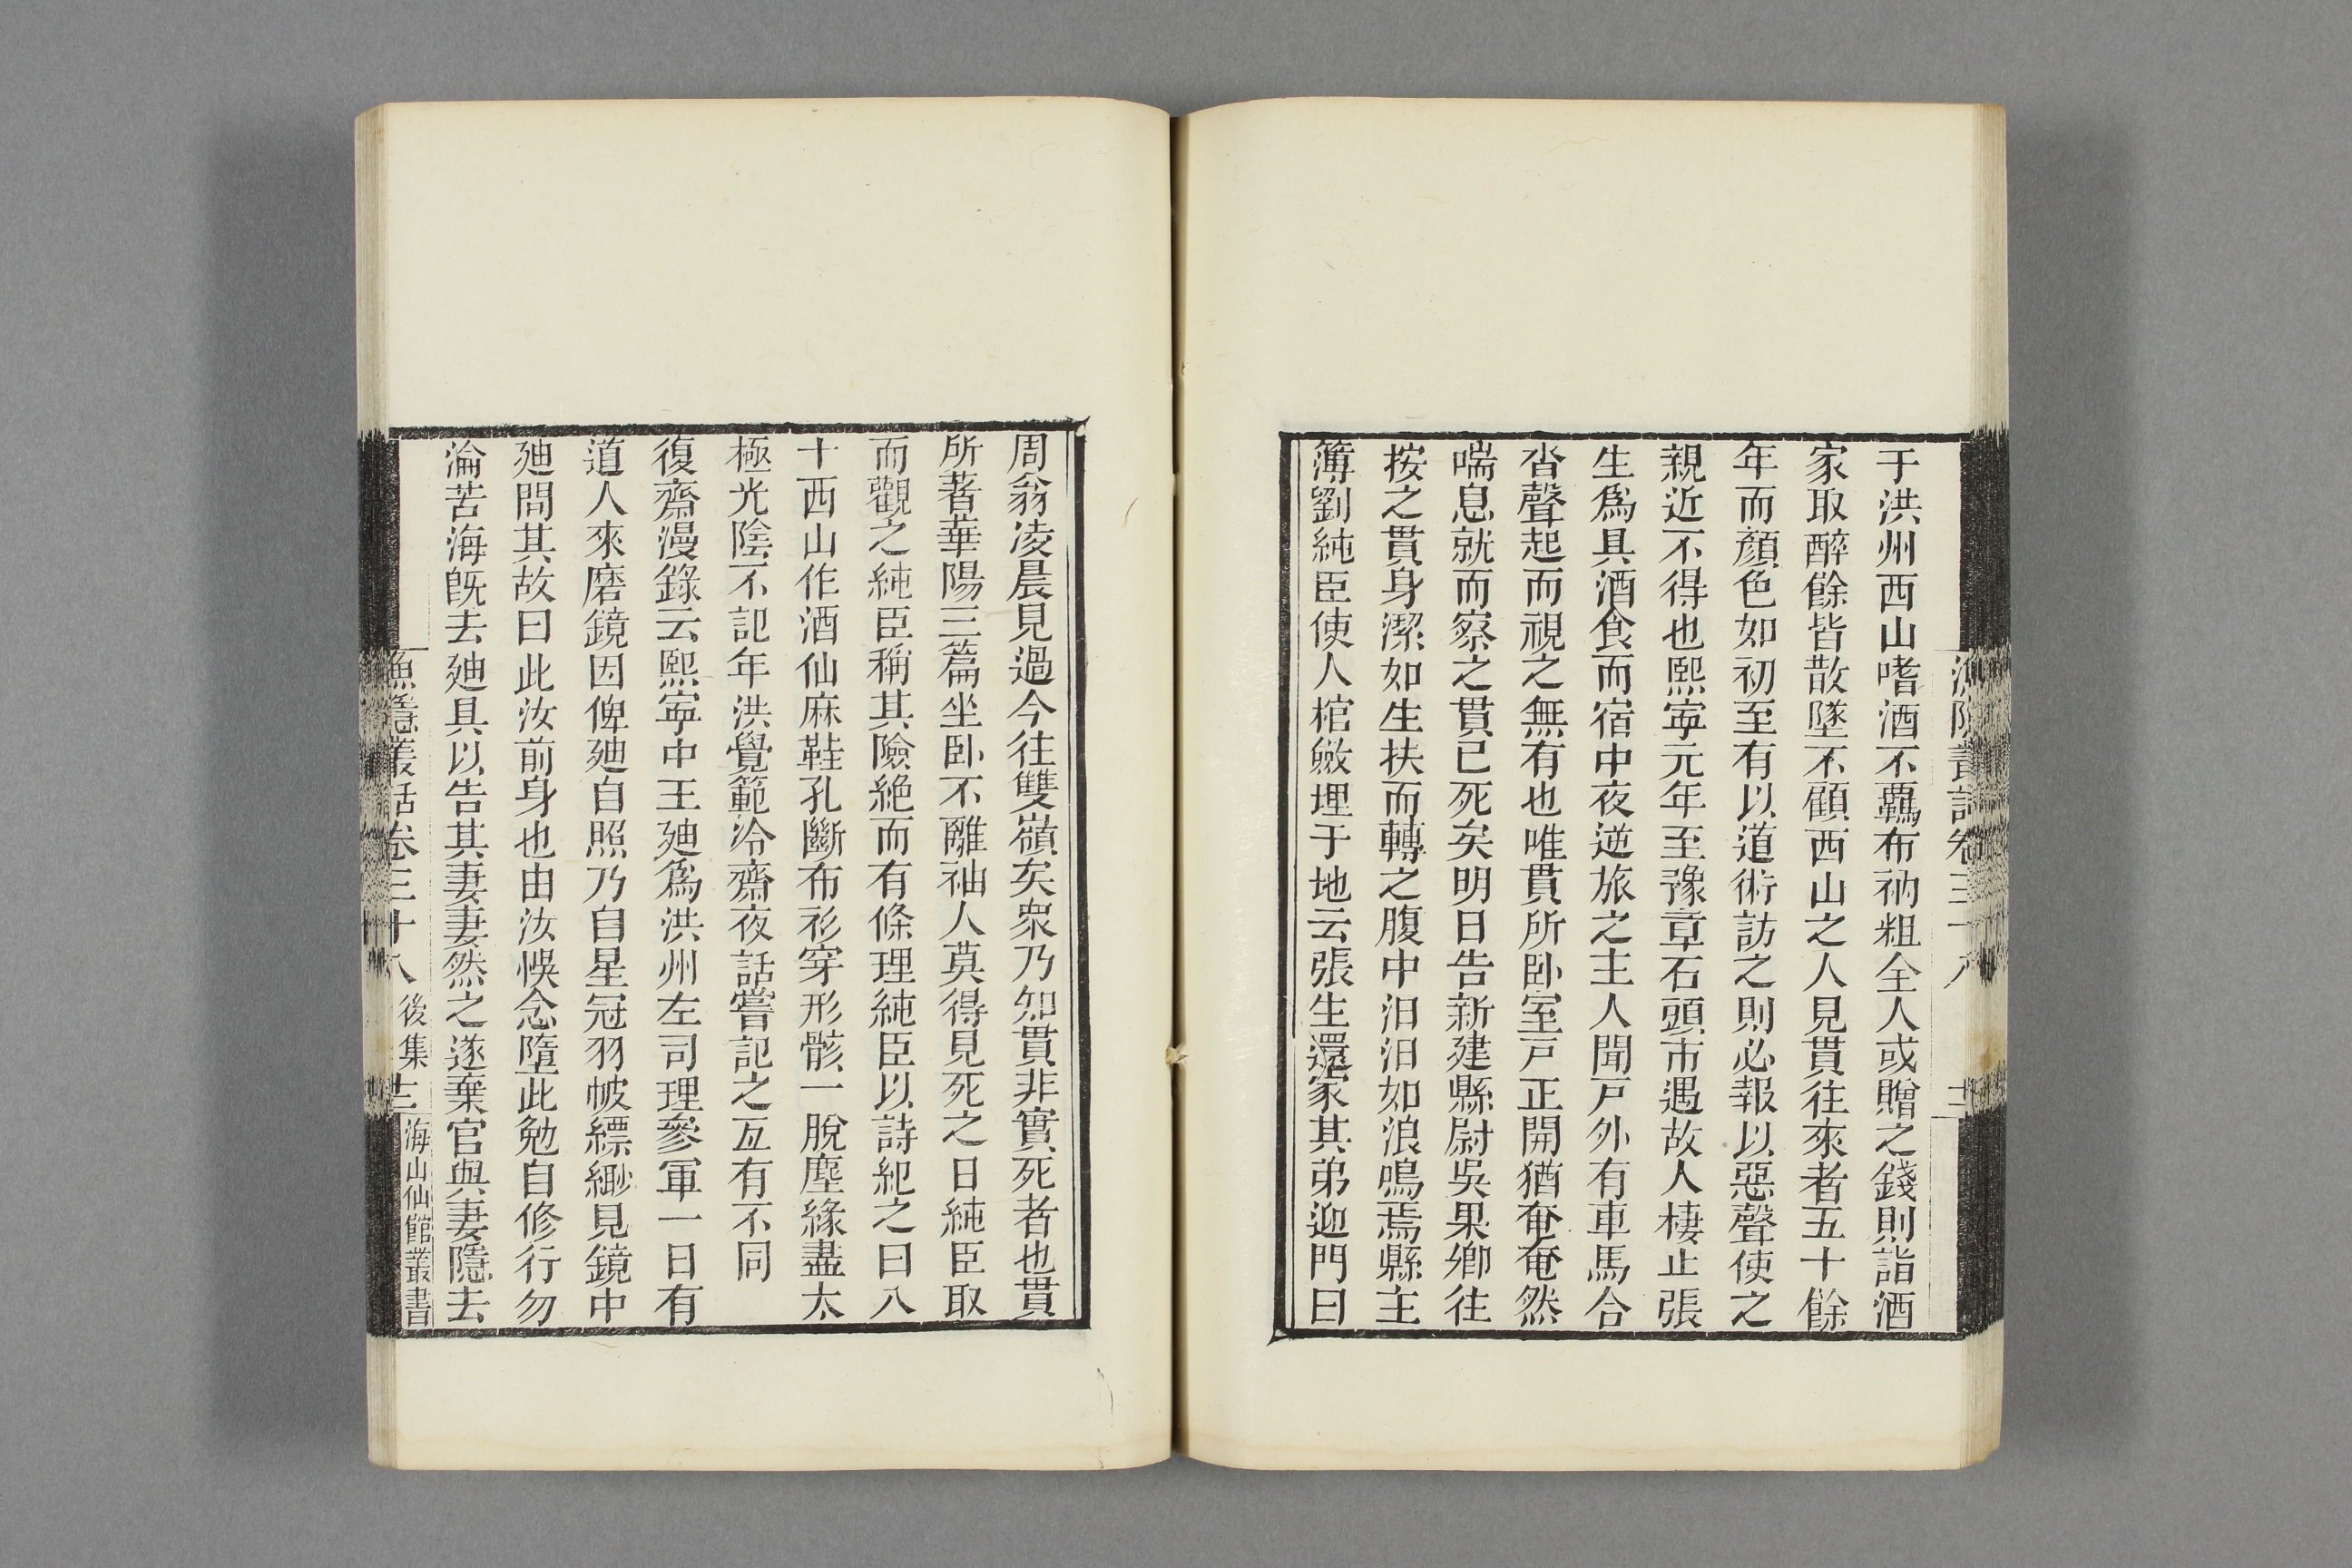 于洪州西山嗜酒不羈布衲粗全人或贈之錢則詣酒
家取醉餘皆散墜不顧西山之人見貫往來者五十餘
年而顏色如初至有以道術訪之則必報以惡聲使之
親近不得也熙寧元年至豫章石頭市遇故人棲止張
生爲具酒食而宿中夜逆旅之主人聞戸外有車馬合
沓聲起而視之無有也唯貫所卧室戸正開猶奄奄然
喘息就而察之貫已死矣明日告新建縣尉吳果卿往
按之貫身潔如生扶而轉之腹中汩汩如浪鳴焉縣主
簿劉純臣使人棺斂埋于地云張生還家其弟迎門曰
周翁凌晨見過今往雙嶺矣衆乃知貫非實死者也貫
所著華陽三篇坐卧不離袖人莫得見死之日純臣取
而觀之純臣稱其險絶而有條理純臣以詩紀之曰八
十西山作酒仙麻鞋孔斷布衫穿形骸一脫塵緣盡太
極光陰不記年洪覺範冷齋夜話嘗記之互有不同
復齋漫錄云熙寧中王廸爲洪州左司理參軍一日有
道人來磨鏡因俾廸自照乃自星冠羽帔縹緲見鏡中
廸問其故曰此汝前身也由汝悞念墮此勉自修行勿
淪苦海旣去廸具以告其妻妻然之遂棄官與妻隱去
漁隱叢話卷三十八 後集 三 海山仙館叢書